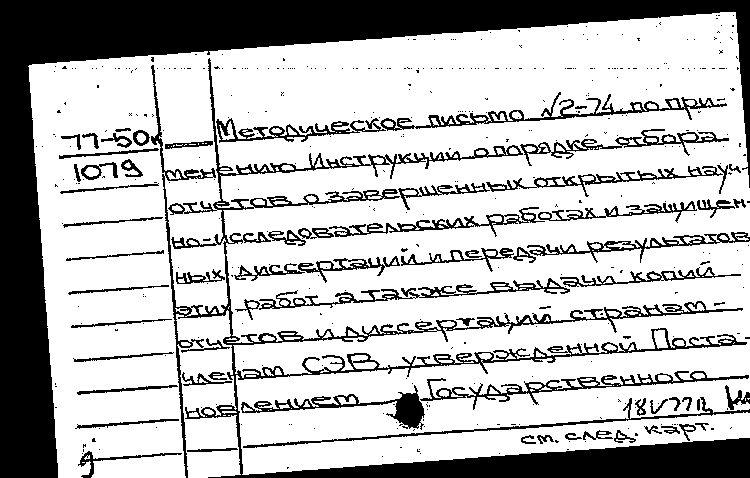 77-50к Методическое письмо №2-74 по при-
1079 менению Инструкции о порядке отбора
отчетов о завершенных открытых науч-
но-исследовательских работах и защищен-
ных диссертаций и передачи результатов
этих работ а также выдачи копий
отчетов и диссертаций странам-
членам СЭВ, утвержденной Поста-
новлением Государственного
см. след. карт.
g